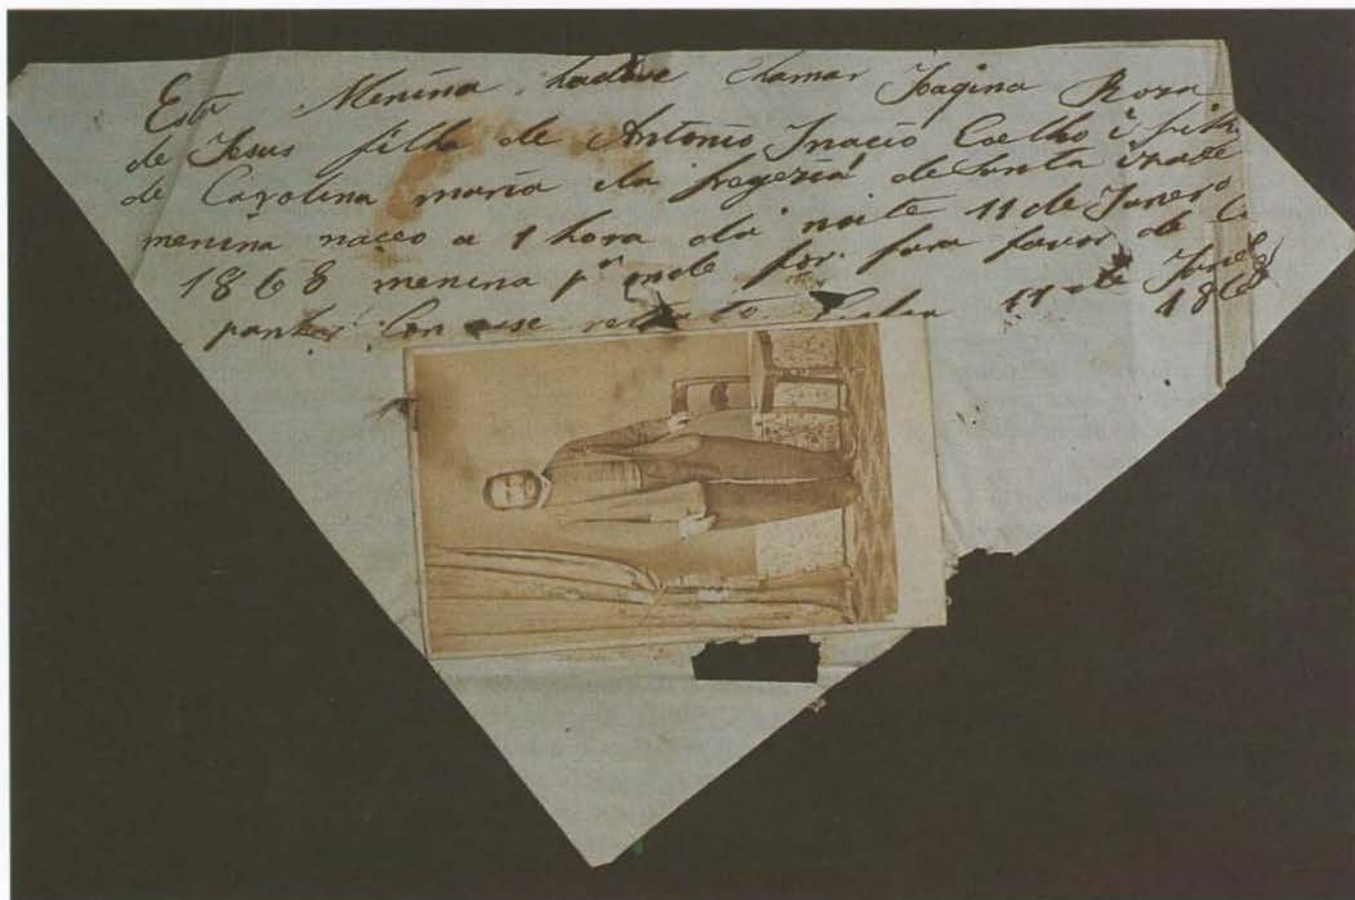 Esta Menina hadese chamar Joaqina Roza
de Jesus filha de Antonio Inacio Coelho i filha
de Carolina maria da fregezia de Santa izabel
menina naceo a 1 hora da noite 11 de Janero
1868 menina p onde for. fara favor de
panhar Con ese retrato Lisboa 11 de
1868